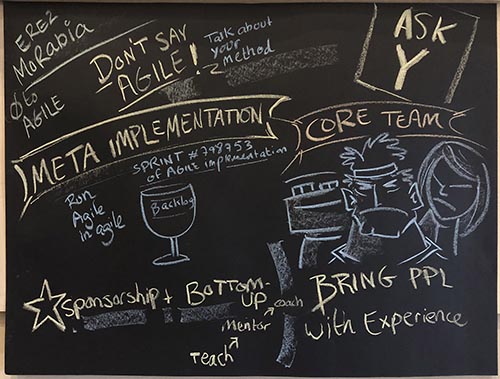 EREZ
MoRaBia
to
AGILE
DON'T SAY
AGILE!
Talk about
your
method
ASK
Y
META IMPLEMENTATION
SPRINT #798753
OF AGILE implementation
Run
Agile
in agile
Backlog
CORE TEAM
Sponsorship + BOTTOM-
UP
coach
mentor
Teach
BRING PPL
with Experience